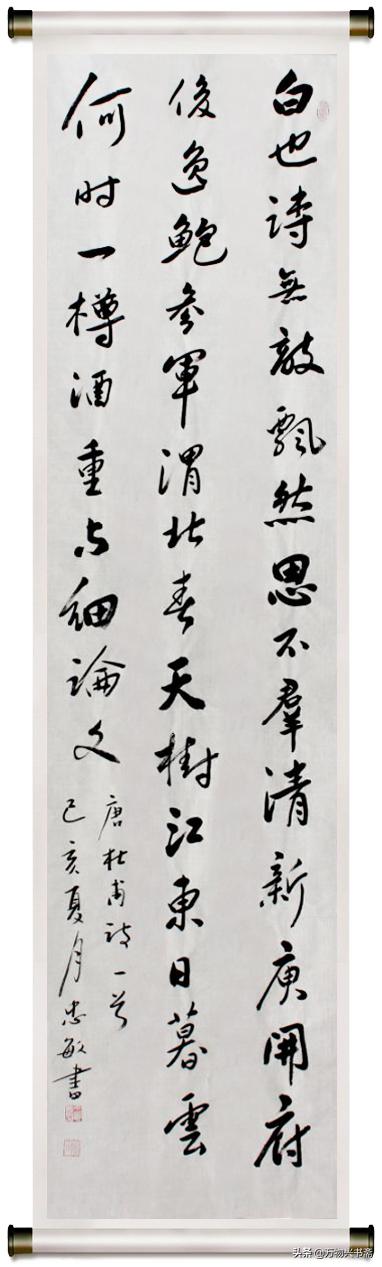 白也詩無敵飄然思不羣清新庾開府
俊逸鮑參軍渭北春天樹江東日暮雲
何时一樽酒重与細論文
唐杜甫诗一首
己亥夏月忠敏書
头条 @万物兴书斋